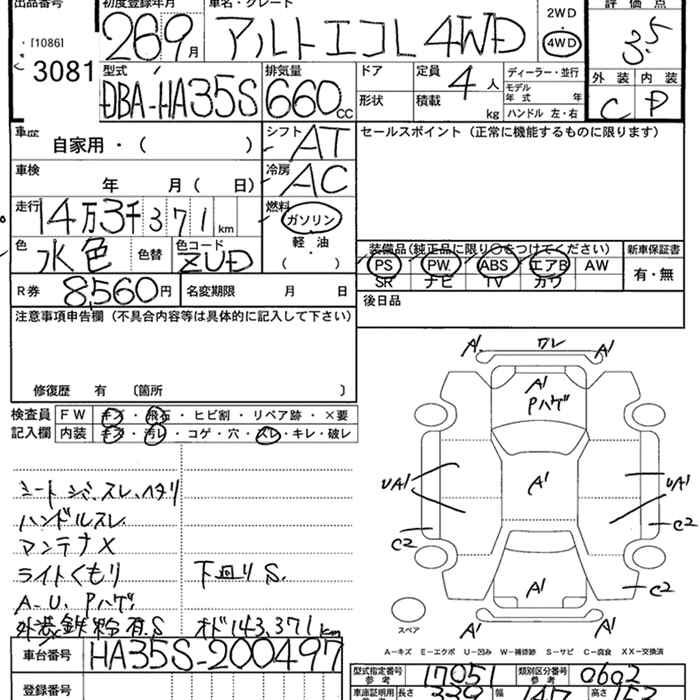 出品番号 初度登録年月 車名・グレード 評価点
[1086]
3081
26 9 月 アルトエコL 4WD 2WD 4WD 3.5
型式 DBA-HA35S 排気量 660 cc
ドア 定員 4 人 ディーラー・並行
形状 積載 kg モデル年式 年 ハンドル 左・右
外装 内装
C D
自家用・( ) シフト AT
セールスポイント(正常に機能するものに限ります)
車検 年 月( 日) 冷房 AC
走行 14万3千371 km 燃料 ガソリン
軽油
( )
色 水色 色替 色コード ZUD
装備品(純正品に限り○をつけてください) 新車保証書
PS PW ABS エアB AW 有・無
SR ナビ TV カワ
R券 8,560円 名変期限 月 日
後日品
注意事項申告欄(不具合内容等は具体的に記入して下さい)
修復歴 有 〔箇所 〕
検査員 FW キズ・飛石・ヒビ割・リペア跡・×要
記入欄 内装 キズ・汚レ・コゲ・穴・スレ・キレ・破レ
シート シミ、スレ、ヘタリ
ハンドルスレ
アンテナX
ライトくもり 下回りS.
A-U、Pハゲ
外装鉄粉有S オド143,371km
A1 ワレ A1
A1
Pハゲ
A1
UA1 UA1
C2 C2
A1 C2
スペア A1 A1
A-キズ E-エクボ U-凹み W-補修跡 S-サビ C-腐食 XX-交換済
車台番号 HA35S-200497
型式指定番号 参考 17051 類別区分番号 参考 0602
登録番号
車庫証明用 参考 長さ 339 147